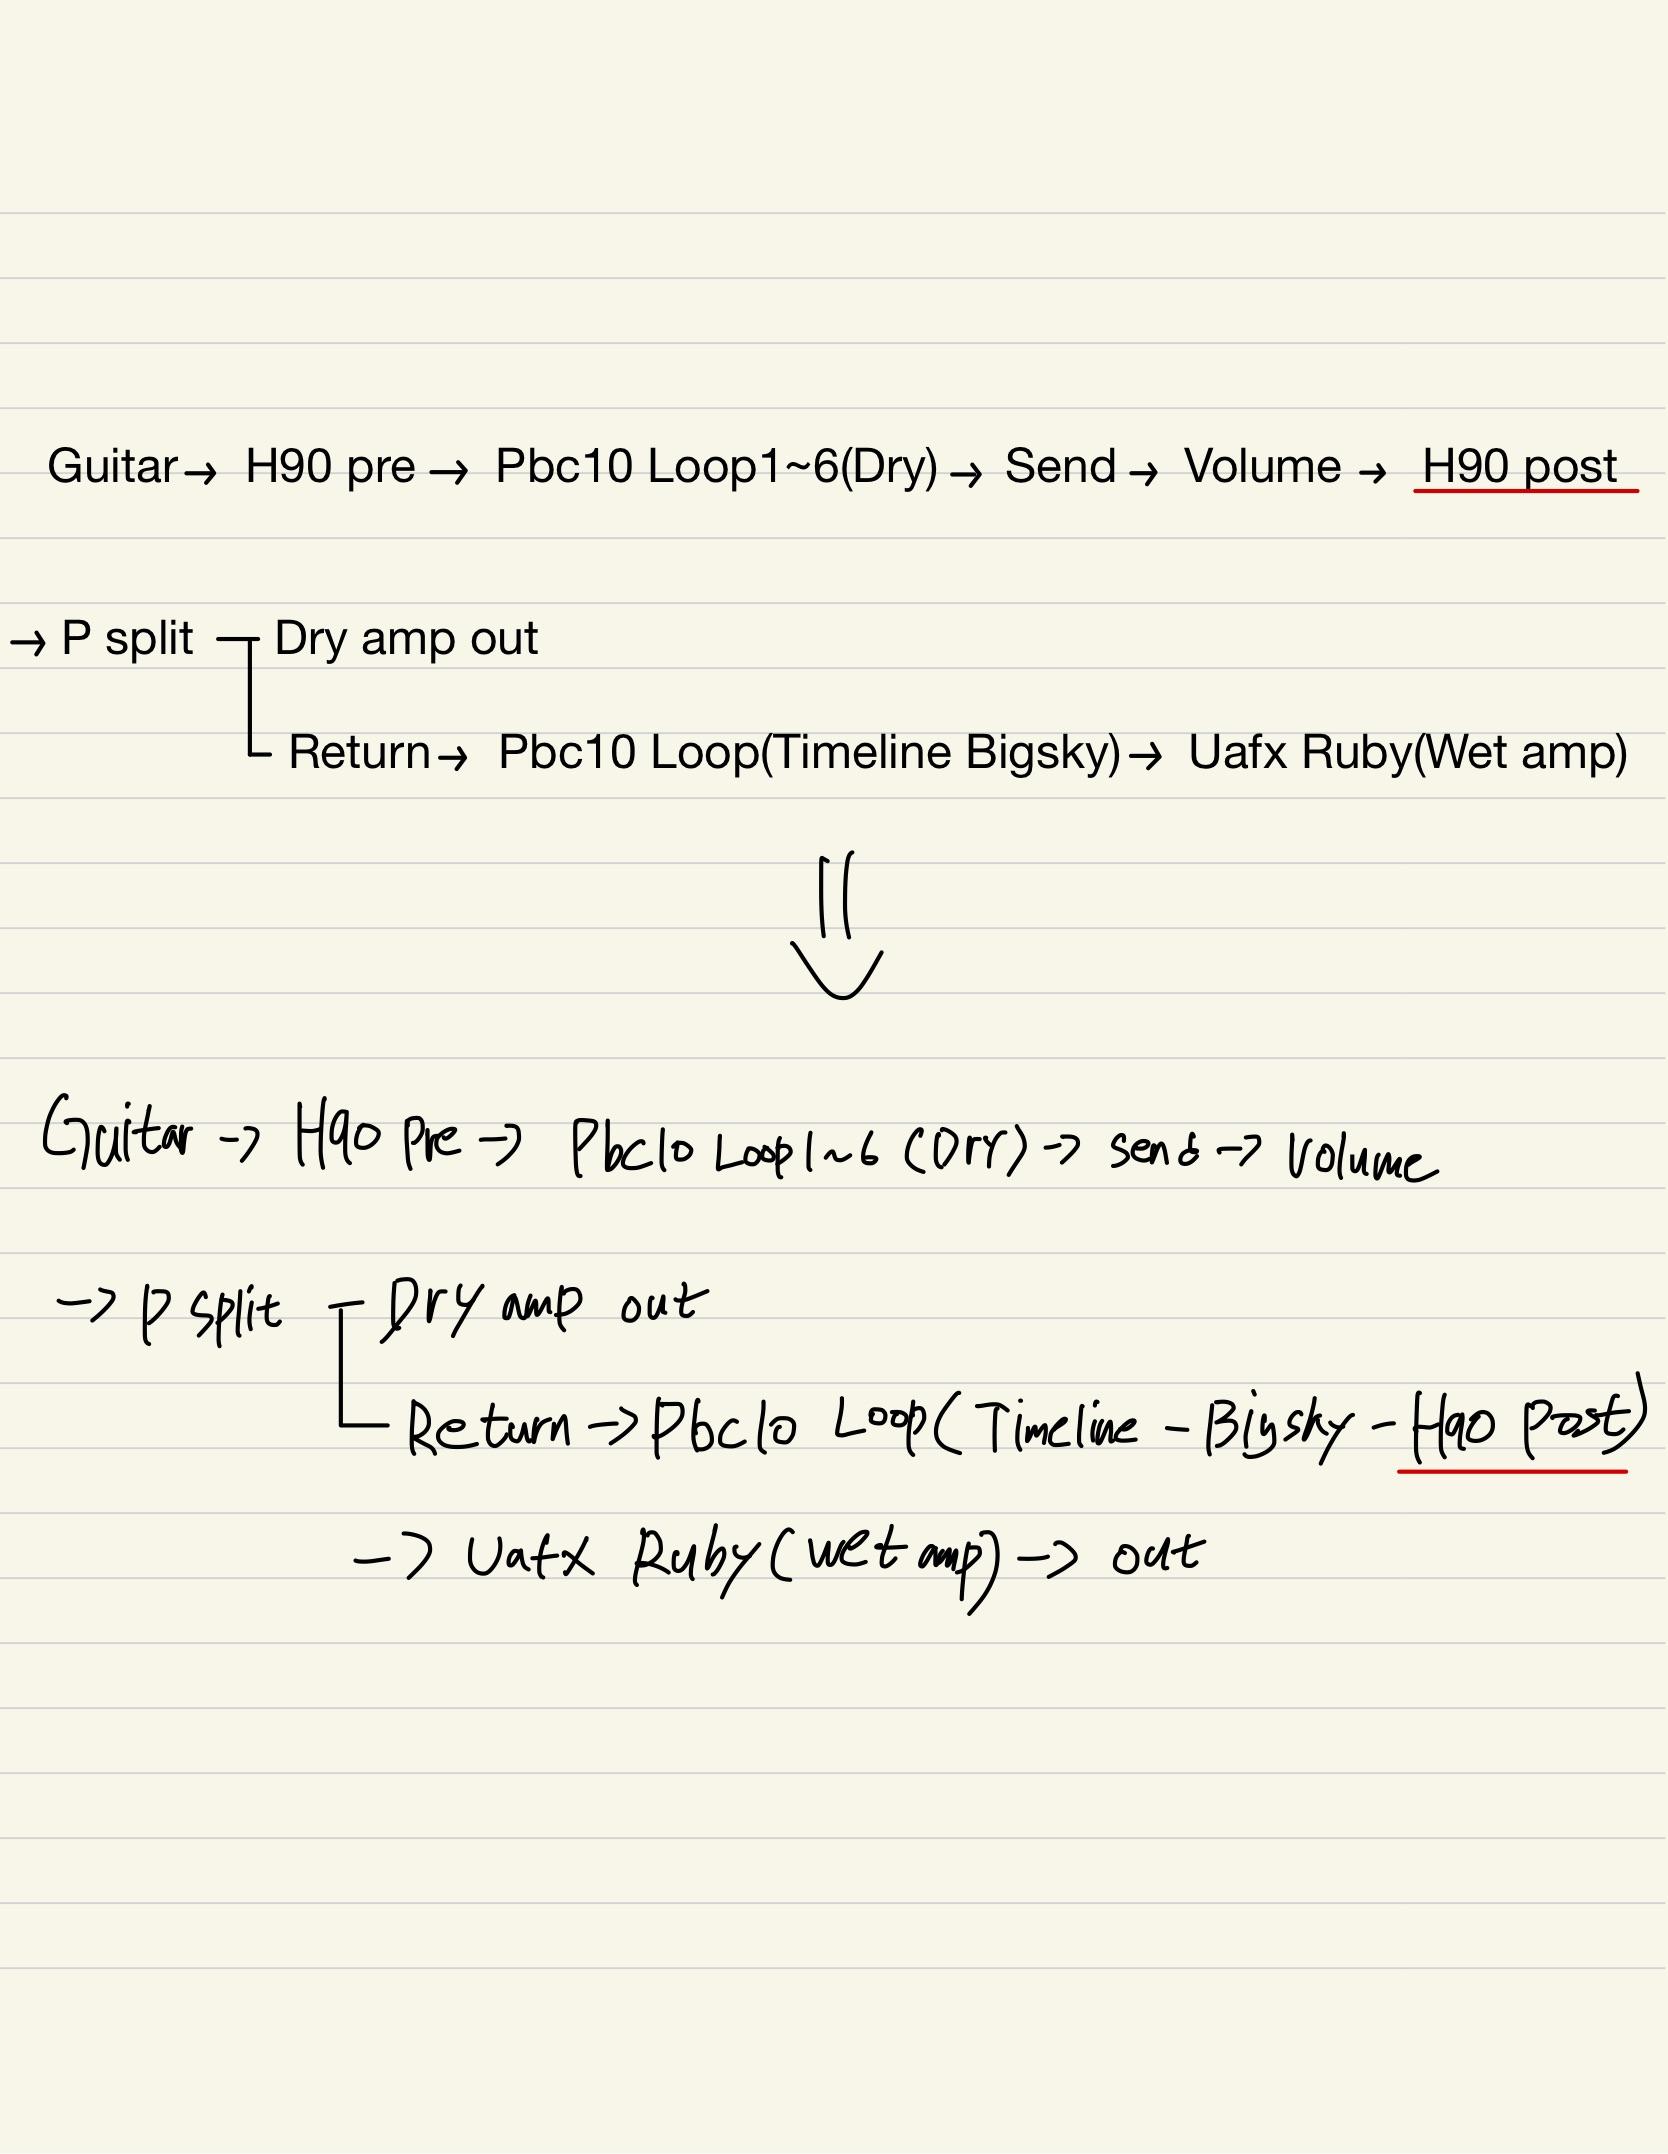 Guitar→ H90 pre → Pbc10 Loop1~6(Dry) → Send → Volume → H90 post
→ P split Dry amp out
Return→ Pbc10 Loop(Timeline Bigsky)→ Uafx Ruby(Wet amp)
Guitar -> H90 pre -> Pbc10 Loop1~6 (Dry) -> send -> Volume
-> P split Dry amp out
Return -> Pbc10 Loop(Timeline - Bigsky - H90 post)
-> Uafx Ruby(wet amp) -> out